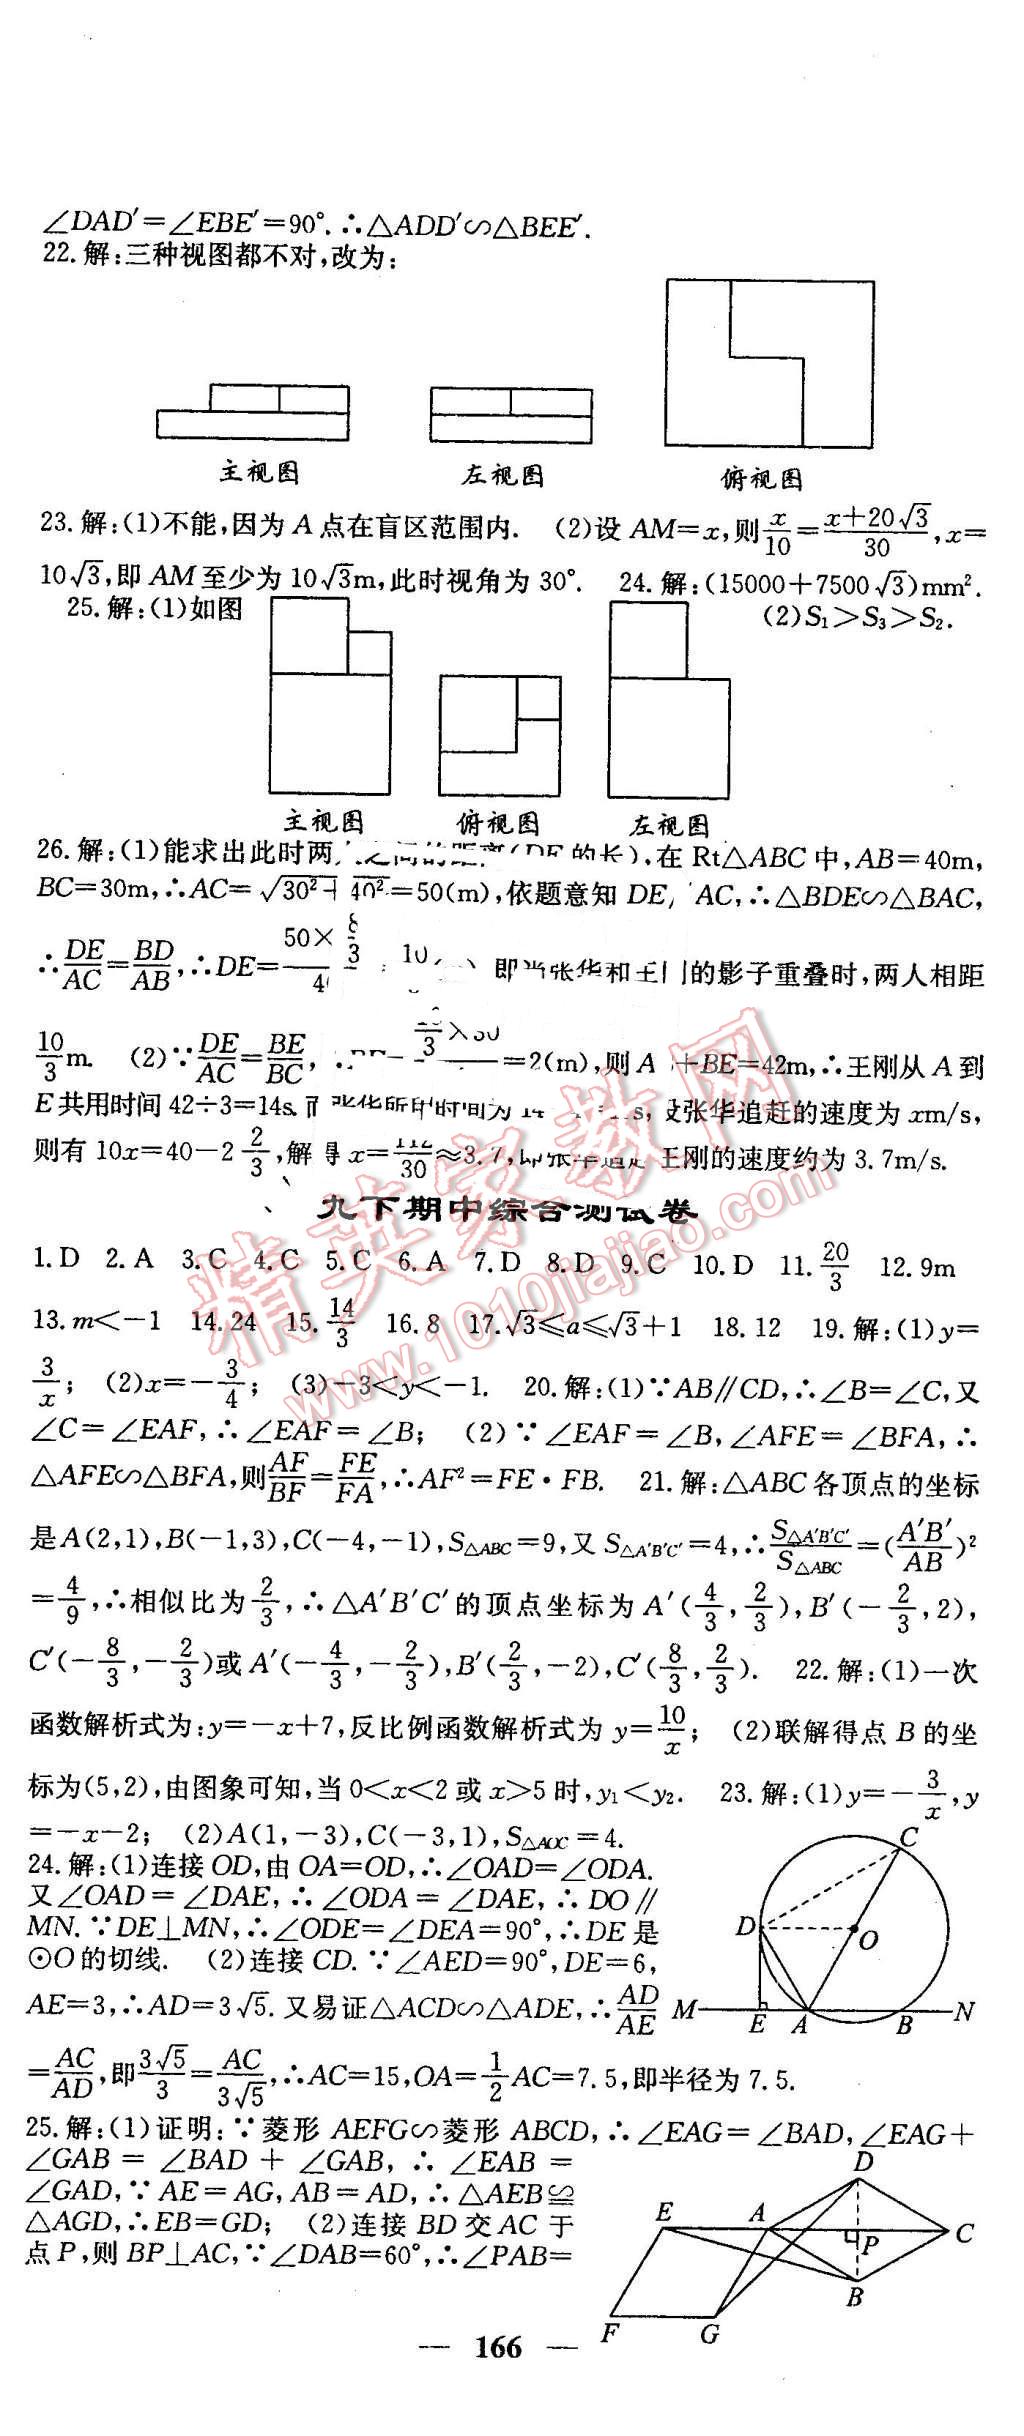 ∠DAD′=∠EBE′=90°.∴△ADD′∽△BEE′.
22.解:三种视图都不对,改为:
主视图 左视图 俯视图
23.解:(1)不能,因为A点在盲区范围内. (2)设AM=x,则x/10=(x+20√3)/30,x=
10√3,即AM至少为10√3m,此时视角为30°. 24.解:(15000+7500√3)mm².
25.解:(1)如图 (2)S₁>S₃>S₂.
主视图 俯视图 左视图
26.解:(1)能求出此时两人之间的距离(DE的长),在Rt△ABC中,AB=40m,
BC=30m,∴AC=√(30²+40²)=50(m),依题意知DE AC,∴△BDE∽△BAC,
∴DE/AC=BD/AB,∴DE= 50× 即当张华和王 的影子重叠时,两人相距
10/3m. (2)∵DE/AC=BE/BC, =2(m),则A +BE=42m,∴王刚从A到
E共用时间42÷3=14s. 张华所用时间为14 s, 设张华追赶的速度为xm/s,
则有10x=40-2 2/3,解得x=112/30≈3.7,即张华追赶王刚的速度约为3.7m/s.
九下期中综合测试卷
1.D 2.A 3.C 4.C 5.C 6.A 7.D 8.D 9.C 10.D 11.20/3 12.9m
13.m<-1 14.24 15.14/3 16.8 17.√3≤a≤√3+1 18.12 19.解:(1)y=
3/x; (2)x=-3/4; (3)-3<y<-1. 20.解:(1)∵AB∥CD,∴∠B=∠C,又
∠C=∠EAF,∴∠EAF=∠B; (2)∵∠EAF=∠B,∠AFE=∠BFA,∴
△AFE∽△BFA,则AF/BF=FE/FA,∴AF²=FE·FB. 21.解:△ABC各顶点的坐标
是A(2,1),B(-1,3),C(-4,-1),S△ABC=9,又S△A′B′C′=4,∴S△A′B′C′/S△ABC=(A′B′/AB)²
=4/9,∴相似比为2/3,∴△A′B′C′的顶点坐标为A′(4/3,2/3),B′(-2/3,2),
C′(-8/3,-2/3)或A′(-4/3,-2/3),B′(2/3,-2),C′(8/3,2/3). 22.解:(1)一次
函数解析式为:y=-x+7,反比例函数解析式为y=10/x; (2)联解得点B的坐
标为(5,2),由图象可知,当0<x<2或x>5时,y₁<y₂. 23.解:(1)y=-3/x,y
=-x-2; (2)A(1,-3),C(-3,1),S△AOC=4.
24.解:(1)连接OD,由OA=OD,∴∠OAD=∠ODA.
又∠OAD=∠DAE,∴∠ODA=∠DAE,∴DO∥
MN.∵DE⊥MN,∴∠ODE=∠DEA=90°,∴DE是
⊙O的切线. (2)连接CD.∵∠AED=90°,DE=6,
AE=3,∴AD=3√5.又易证△ACD∽△ADE,∴AD/AE
C
D
O
M E A B N
=AC/AD,即3√5/3=AC/3√5,∴AC=15,OA=1/2AC=7.5,即半径为7.5.
25.解:(1)证明:∵菱形AEFG∽菱形ABCD,∴∠EAG=∠BAD,∠EAG+
∠GAB=∠BAD+∠GAB,∴∠EAB=
∠GAD,∵AE=AG,AB=AD,∴△AEB≌
△AGD,∴EB=GD; (2)连接BD交AC于
点P,则BP⊥AC,∵∠DAB=60°,∴∠PAB=
D
E A C
P
B
F G
— 166 —
精英家教网
www.1010jiajiao.com